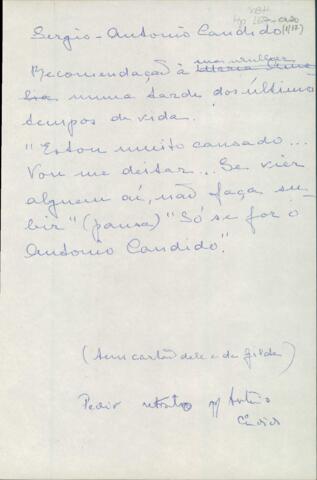 Sergio - Antonio Candido
Recomendação à
numa tarde dos últimos
tempos de vida.
"Estou muito cansado...
Vou me deitar... Se vier
alguem aí, não faça su-
bir" (pausa) "Só se for o
Antonio Candido."
(tem cartão dele e da Gilda)
Pedir retrato p/ Antonio
Candido